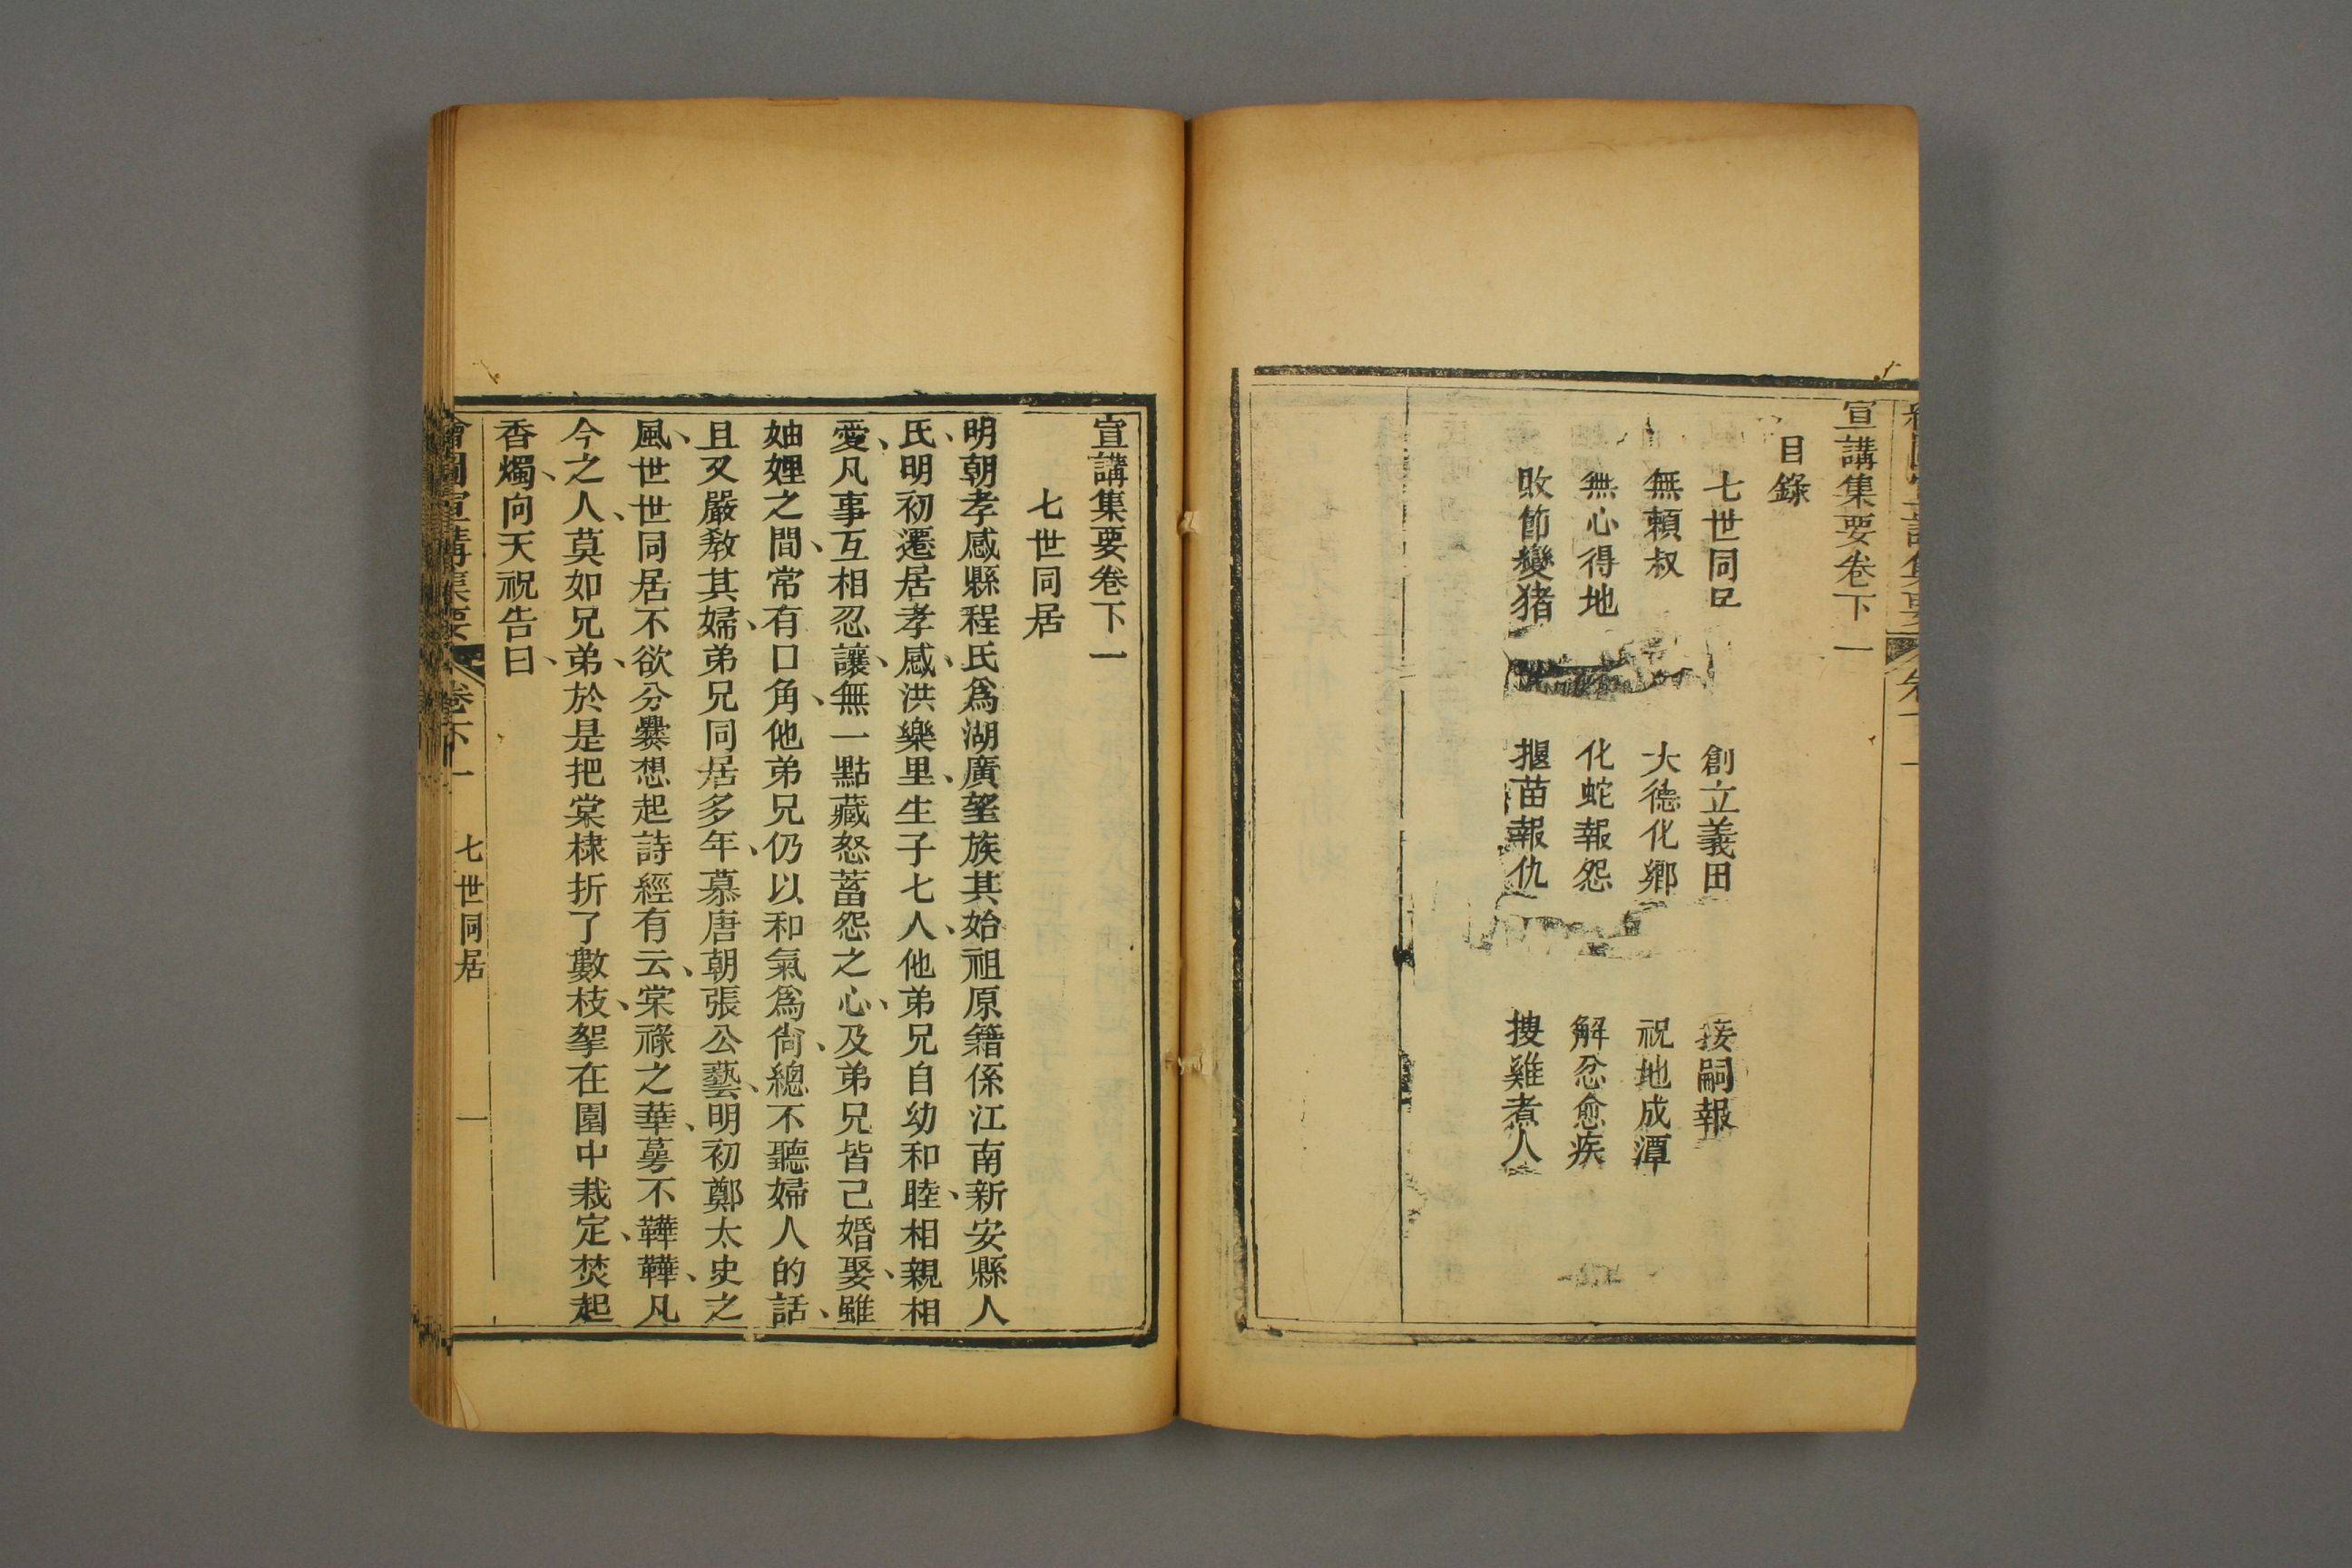 宣講集要卷下一
目錄
七世同居 創立義田 接嗣報
無賴叔 大德化鄉 祝地成潭
無心得地 化蛇報怨 解忿愈疾
敗節變猪 揠苗報仇 搜雞煮人
宣講集要卷下一
七世同居
明朝孝感縣程氏爲湖廣望族其始祖原籍係江南新安縣人
氏、明初遷居孝感、洪樂里、生子七人、他弟兄自幼和睦、相親相
愛、凡事互相忍讓、無一點藏怒蓄怨之心、及弟兄皆己婚娶、雖
妯娌之間、常有口角、他弟兄仍以和氣爲尙、總不聽婦人的話、
且又嚴敎其婦、弟兄同居多年、慕唐朝張公藝、明初鄭太史之
風、世世同居不欲分爨想起詩經有云、棠祿之華、萼不韡韡、凡
今之人、莫如兄弟、於是把棠棣折了數枝、拏在園中栽定、焚起
香燭、向天祝告曰、
繪圖宣講集要 卷下一 七世同居 一